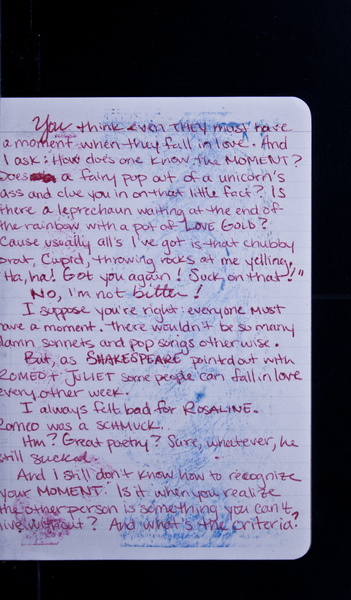 You think even they must have
a moment when they fall in love. And
I ask: How does one know the MOMENT?
Does a fairy pop out of a unicorn's
ass and clue you in on that little fact? Is
there a leprechaun waiting at the end of
the rainbow with a pot of LOVE GOLD?
'Cause usually all's I've got is that chubby
brat, Cupid, throwing rocks at me yelling,
"Ha, ha! Got you again! Suck on that!!"
No, I'm not bitter!
I suppose you're right: everyone MUST
have a moment. There wouldn't be so many
damn sonnets and pop songs otherwise.
But, as SHAKESPEARE pointed out with
ROMEO + JULIET some people can fall in love
every other week.
I always felt bad for ROSALINE.
Romeo was a SCHMUCK.
Hm? Great poetry? Sure, whatever, he
still sucked.
And I still don't know how to recognize
your MOMENT. Is it when you realize
the other person is something you can't
live without? And what's the criteria?